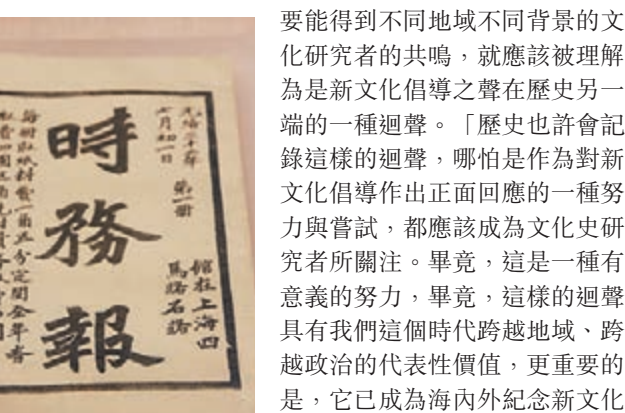 光緒二十二年 第一冊
七月初一日
館在上海四
馬路石路
時務報
每冊取紙料費一角五分定閱全年者
要能得到不同地域不同背景的文
化研究者的共鳴，就應該被理解
為是新文化倡導之聲在歷史另一
端的一種迴聲。「歷史也許會記
錄這樣的迴聲，哪怕是作為對新
文化倡導作出正面回應的一種努
力與嘗試，都應該成為文化史研
究者所關注。畢竟，這是一種有
意義的努力，畢竟，這樣的迴聲
具有我們這個時代跨越地域、跨
越政治的代表性價值，更重要的
是，它已成為海內外紀念新文化